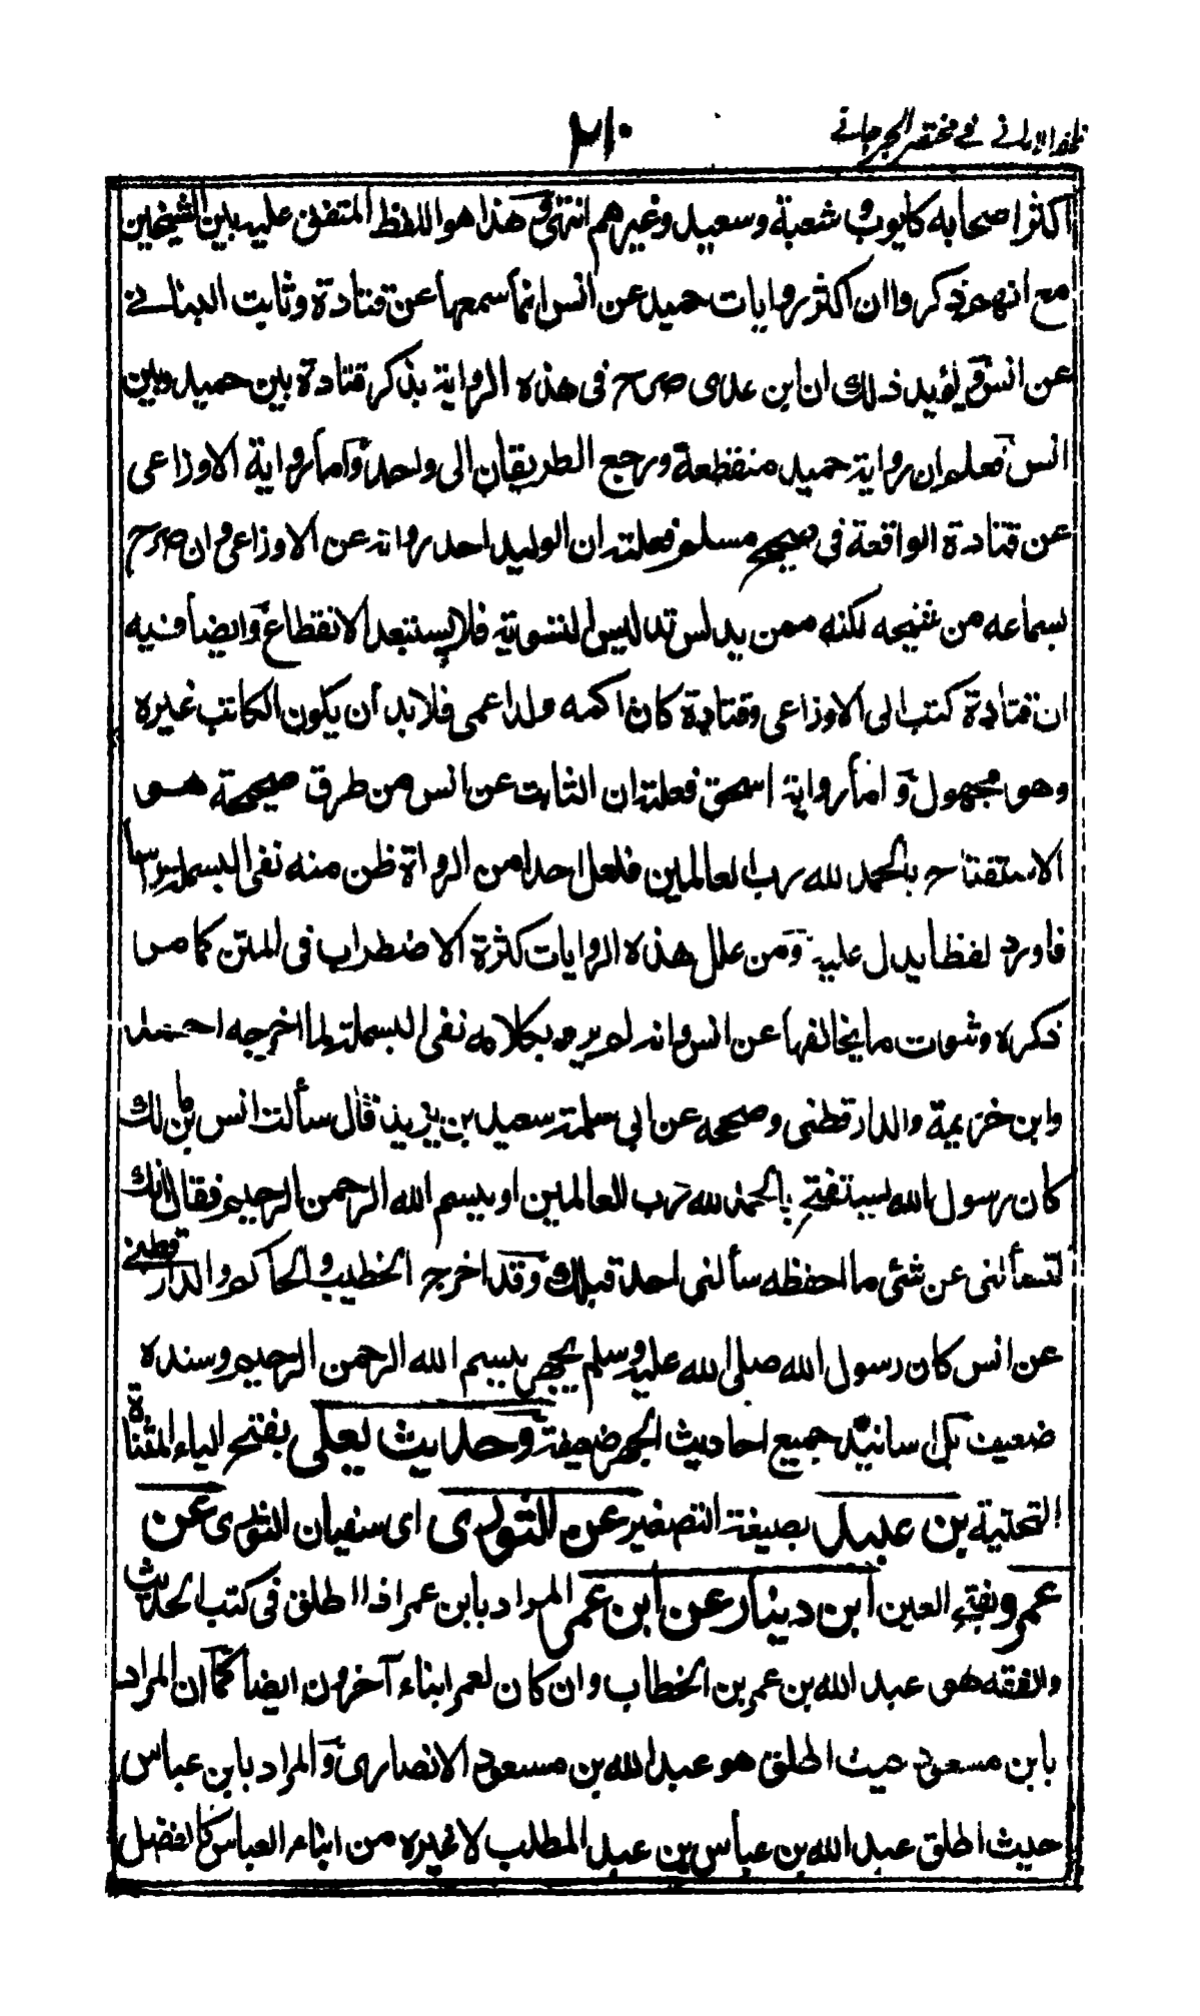 ظفر الاماني في مختصر الجرجاني
٢١٠
اكثر اصحابه كايوب وشعبة وسعيد وغيرهم انتهى وهذا هو اللفظ المتفق عليه بين الشيخين
مع انهم ذكروا ان اكثر روايات حميد عن انس انما سمعها عن قتادة وثابت البناني
عن انس ويؤيد ذلك ان ابن عدى صرح فى هذه الرواية بذكر قتادة بين حميد وبين
انس فعلم ان رواية حميد منقطعة ورجع الطريقان الى واحد واما رواية الاوزاعى
عن قتادة الواقعة فى صحيح مسلم فعلته ان الوليد احد رواته عن الاوزاعى وان صرح
بسماعه من شيخه لكنه ممن يدلس تدليس التسوية فلا يستبعد الانقطاع وايضا فيه
ان قتادة كتب الى الاوزاعى وقتادة كان اكمه ولد اعمى فلا بد أن يكون الكاتب غيره
وهو مجهول و اما رواية اسحق فعلته ان الثابت عن انس من طرق صحيحة هو
الاستفتاح بالحمد لله رب العالمين فلعل احدا من الرواة ظن منه نفى البسملة سرا
فاورد لفظا يدل عليه ومن علل هذه الروايات كثرة الاضطراب فى المتن كما مر
ذكره وثبوت ما يخالفها عن انس وانه لم يرد بكلامه نفى البسملة لما اخرجه احمد
وابن خزيمة والدارقطنى وصححه عن ابي سلمة سعيد بن يزيد قال سألت انس بن مالك
كان رسول الله يستفتح بالحمد لله رب العالمين او ببسم الله الرحمن الرحيم فقال انك
لتسألنى عن شئ ما احفظه سألنى احد قبلك وقد اخرجه الخطيب والحاكم والدارقطني
عن انس كان رسول الله صلى الله عليه وسلم يجهر ببسم الله الرحمن الرحيم وسنده
ضعيف بل اسانيد جميع احاديث الجهر ضعيفة وحديث يعلى بفتح الياء المثناة
التحتية بن عبيد بصيغة التصغير عن الثورى اى سفيان الثورى عن
عمرو بفتح العين ابن دينار عن ابن عمر المراد بابن عمر اذا اطلق فى كتب الحديث
والفقه هو عبد الله بن عمر بن الخطاب وان كان لعمر ابناء آخرون ايضا كما ان المراد
بابن مسعود حيث اطلق هو عبد الله بن مسعود الانصارى والمراد بابن عباس
حيث اطلق عبد الله بن عباس بن عبد المطلب لا غيره من ابناء العباس كالفضل